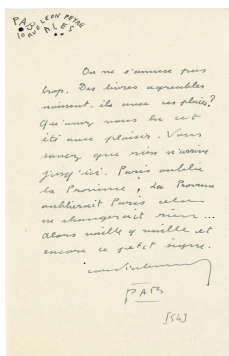 PAB
10 RUE LEON PEYRE
ALES
On ne s'amuse pas
trop. Des livres agréables
naissent-ils avec ces pluies?
Qu'avez vous lu cet
été avec plaisir. Vous
savez que rien n'arrive
jusqu'ici. Paris oublie
la Province, La Province
oublierait Paris cela
ne changerait rien...
Alors vaille y vaille et
encore ce petit signe.
PAB
[54]